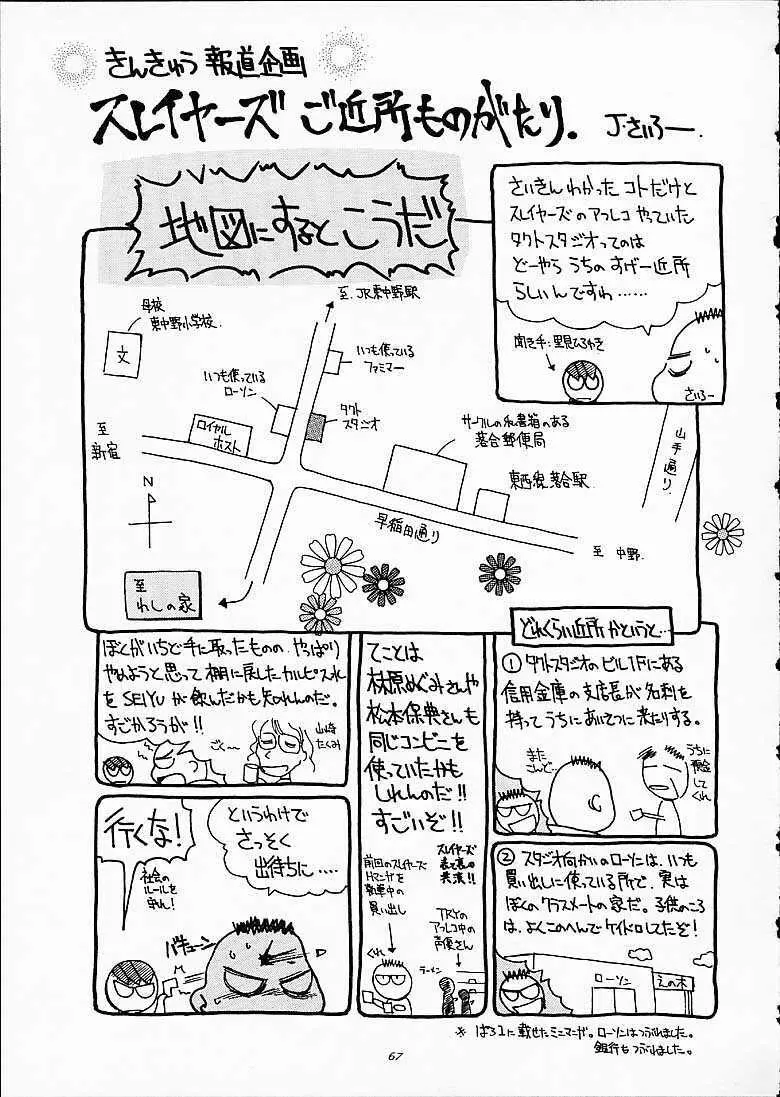 きんきゅう報道企画
スレイヤーズ ご近所ものがたり。
J・さいろー.
地図にするとこうだ
さいきんわかったコトだけと
スレイヤーズのアフレコやっていた
タクトスタジオってのは
どーやらうちのすげー近所
らしいんですわ……
聞き手:里見ひろゆき
さいろー
至.JR東中野駅
母校
東中野小学校.
文
いつも使っている
ファミマー
いつも使っている
ローソン
タクト
スタジオ
ロイヤル
ホスト
サークルの私書箱のある
落合郵便局
東西線落合駅
山手通り
至
新宿
N
早稲田通り
至 中野.
至
わしの家
どれくらい近所かというと…
① タクトスタジオのビル1Fにある
信用金庫の支店長が名刺を
持ってうちにあいさつに来たりする。
また
こんど…
うちに
預金
して
くれ
② スタジオ向かいのローソンは、いつも
買い出しに使っている所で、実は
ぼくのクラスメートの家だ。子供のころ
は、よくこのへんでケイドロしてたぞ!
ローソン
えの木
てことは
林原めぐみさんや
松本保典さんも
同じコンビニを
使っていたかも
しれんのだ!!
すごいぞ!!
スレイヤーズ
表と裏の
共演!!
前回のスレイヤーズ
Hマンガを
執筆中の
買い出し
TRYの
アフレコ中の
声優さん
くれ
ラーメン
ぼくがいちど手に取ったものの、やっぱり
やめようと思って棚に戻したカルピスぉれ
をSEIYUが飲んだかも知れんのだ。
すごかろうが!!
ごく〜
山崎
たくみ
というわけで
さっそく
出待ちに….
行くな!
社会の
ルールを
守れ!
バキューン
※ ぱろ1に載せたミニマンガ。ローソンはつぶれました。
銀行もつぶれました。
67